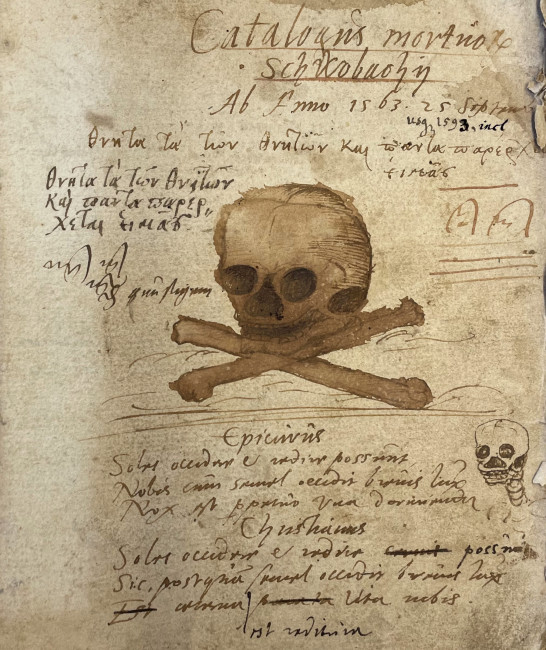 Catalogus mortuor
Schwobachij
Ab Anno 1563. 25 Septem
usq 1593, incl
θνητὰ τὰ τῶν θνητῶν καὶ πάντα παρερ
θνητὰ τὰ τῶν θνητῶν
καὶ πάντα παρέρ
χεται ἡμᾶς
Epicurus
Soles occidere & redire possunt
Nobis cum semel occidit brevis lux
Nox est ppetuo una dormienda
Christianus
Soles occidere & redire possu
Sic, postquam semel occidit brevis lux
aeterna vita nobis
est reditura